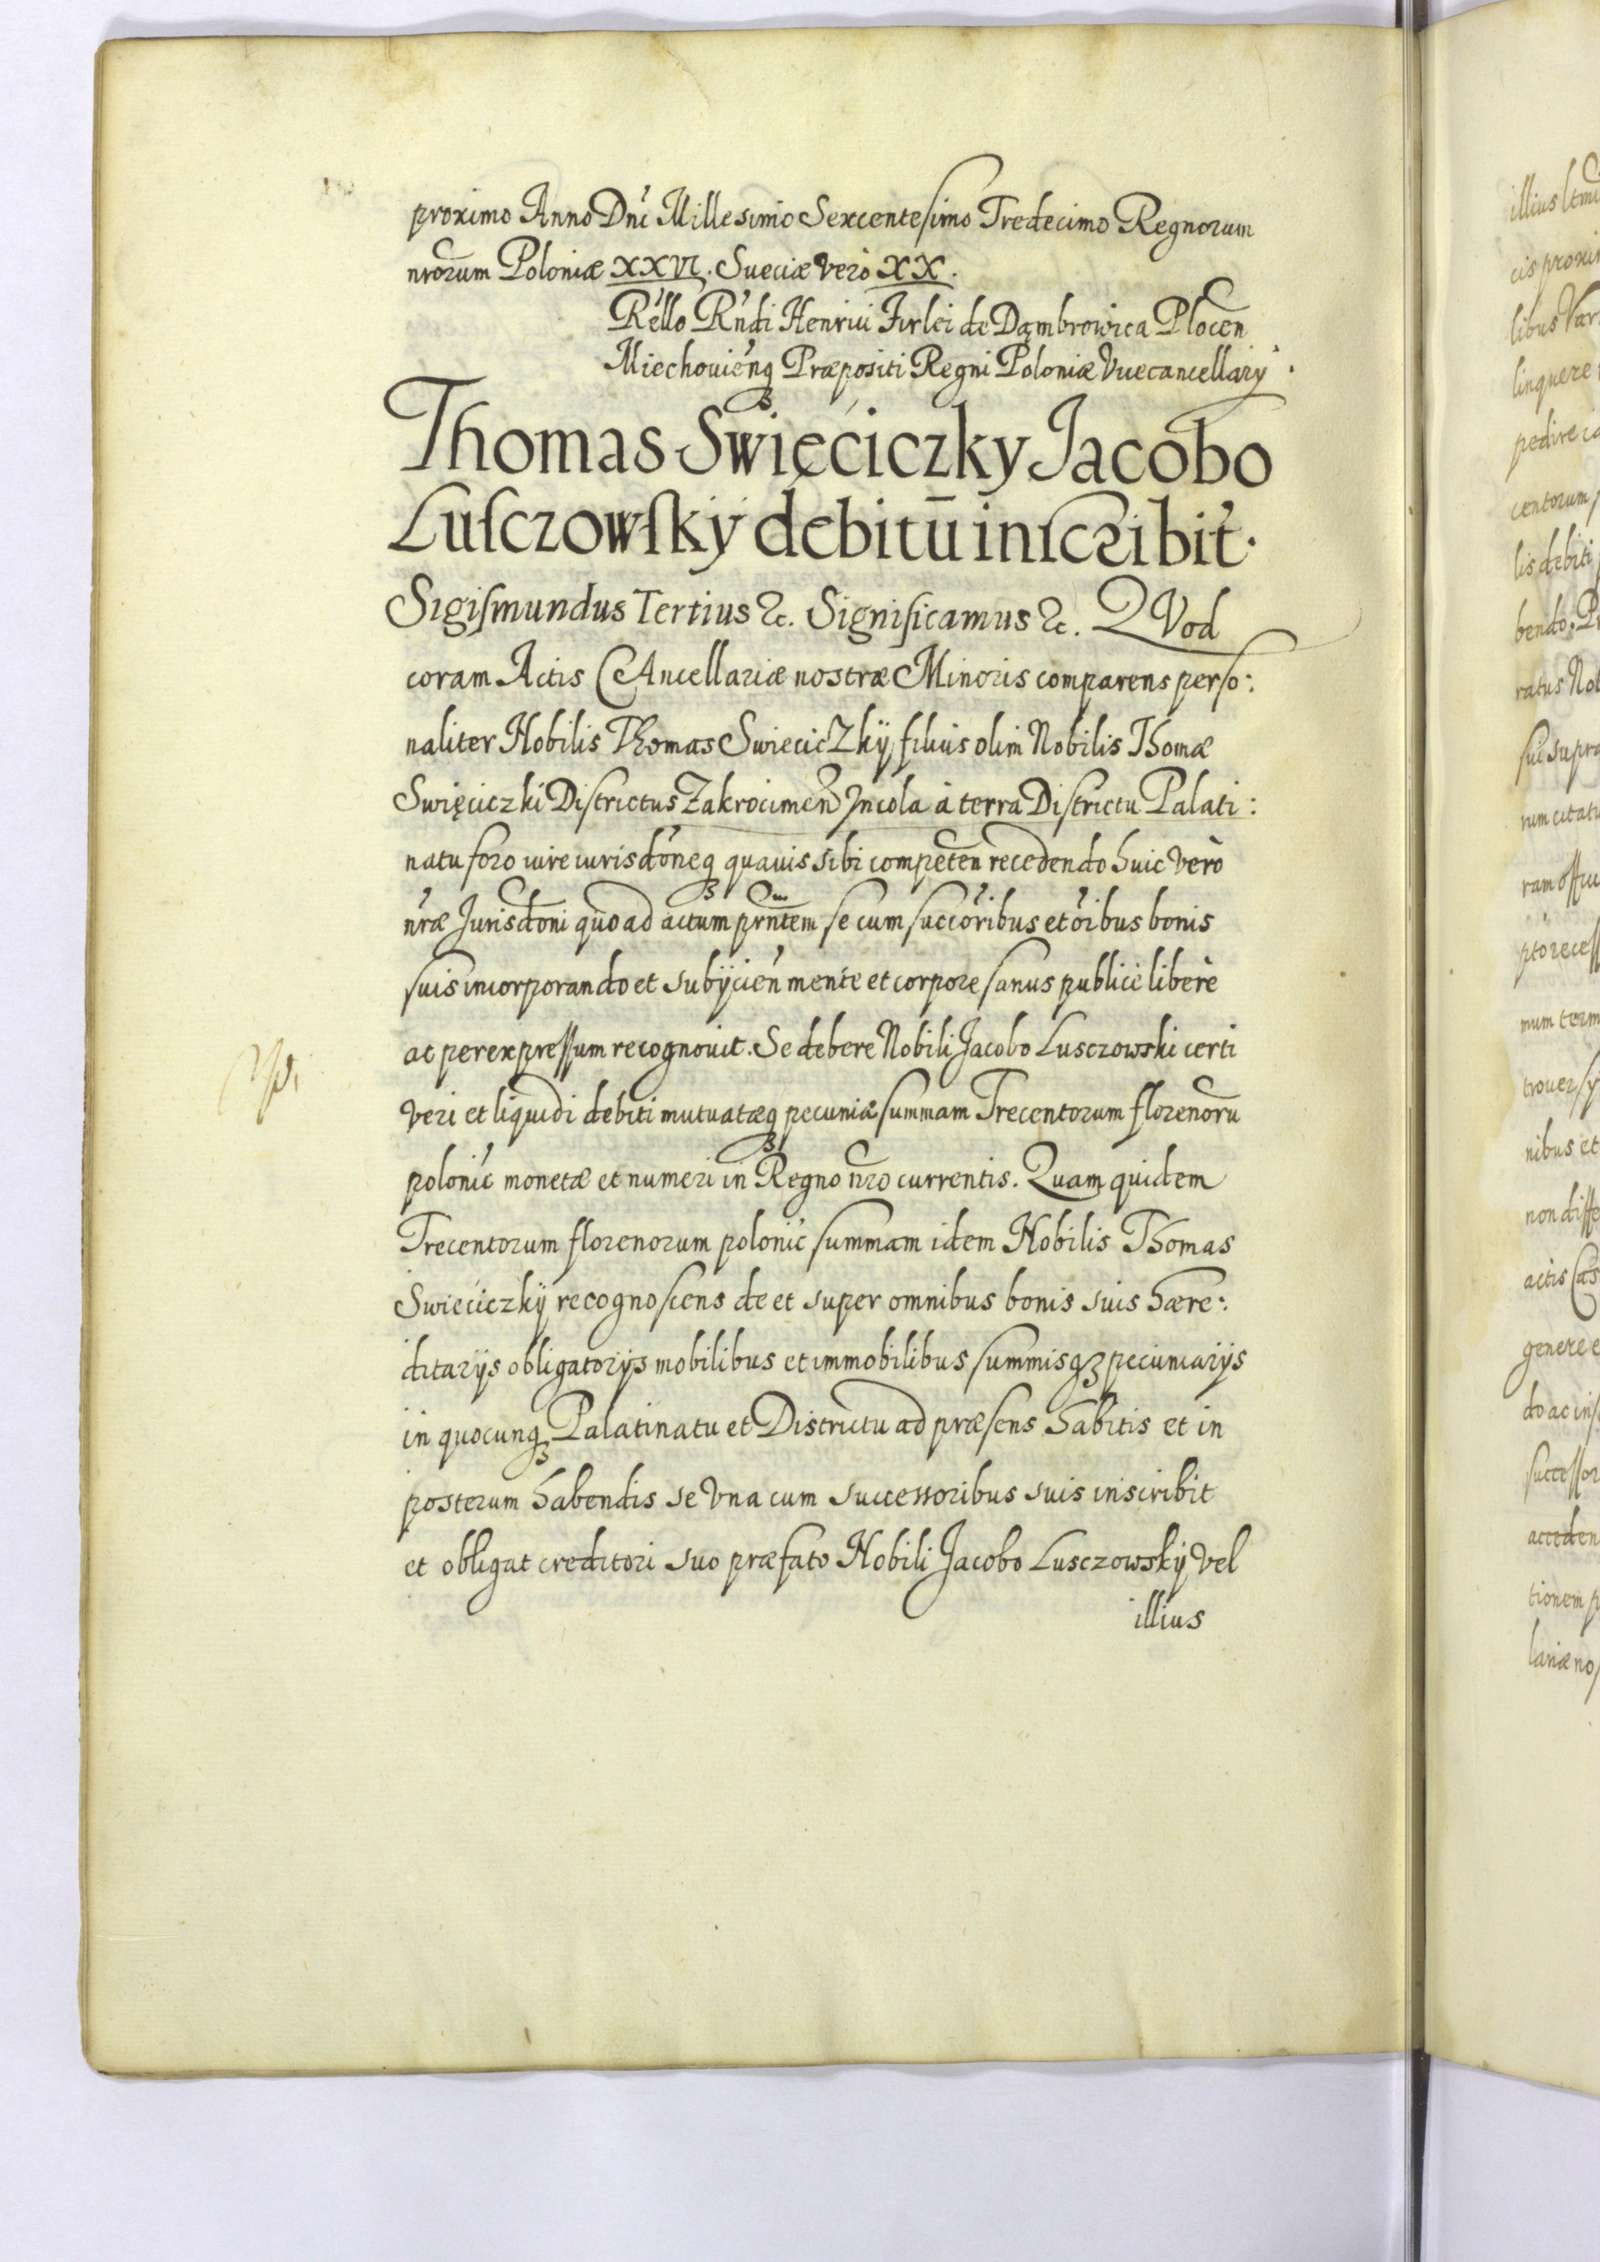 proximo Anno Dni Millesimo Sexcentesimo Tredecimo Regnorum
nrorum Poloniæ XXVI. Sueciæ vero XX.
Rello Rndi Henrici Firlei de Dąmbrowica Plocen
Miechouienq3 Præpositi Regni Poloniæ Vicecancellarij.
Thomas Swięciczky Jacobo
Lusczowsky debitū inscribit.
Sigismundus Tertius &c. Significamus &c. QVod
coram Actis CAncellariæ nostræ Minoris comparens perso:
naliter Nobilis Thomas Swieciczkÿ filius olim Nobilis Thomæ
Swięciczki Districtus Zakrocimen Incola à terra Districtu Palati:
natu foro iure iurisdoneq3 quauis sibi competen recedendo huic verò
nræ Jurisdoni quo ad actum prntem se cum succoribus et oibus bonis
suis incorporando et subijcien mente et corpore sanus publicè liberè
ac per expressum recognouit. Se debere Nobili Jacobo Lusczowski certi
veri et liquidi debiti mutuatæq3 pecuniæ summam Trecentorum florenorū
polonic monetæ et numeri in Regno nro currentis. Quam quidem
Trecentorum florenorum polonic summam idem Nobilis Thomas
Swieciczkÿ recognoscens de et super omnibus bonis suis hære:
ditarijs obligatorijs mobilibus et immobilibus summisq3 pecuniarijs
in quocunq3 Palatinatu et Districtu ad præsens habitis et in
posterum habendis se vna cum successoribus suis inscribit
et obligat creditori suo præfato Nobili Jacobo Lusczowskÿ vel
illius